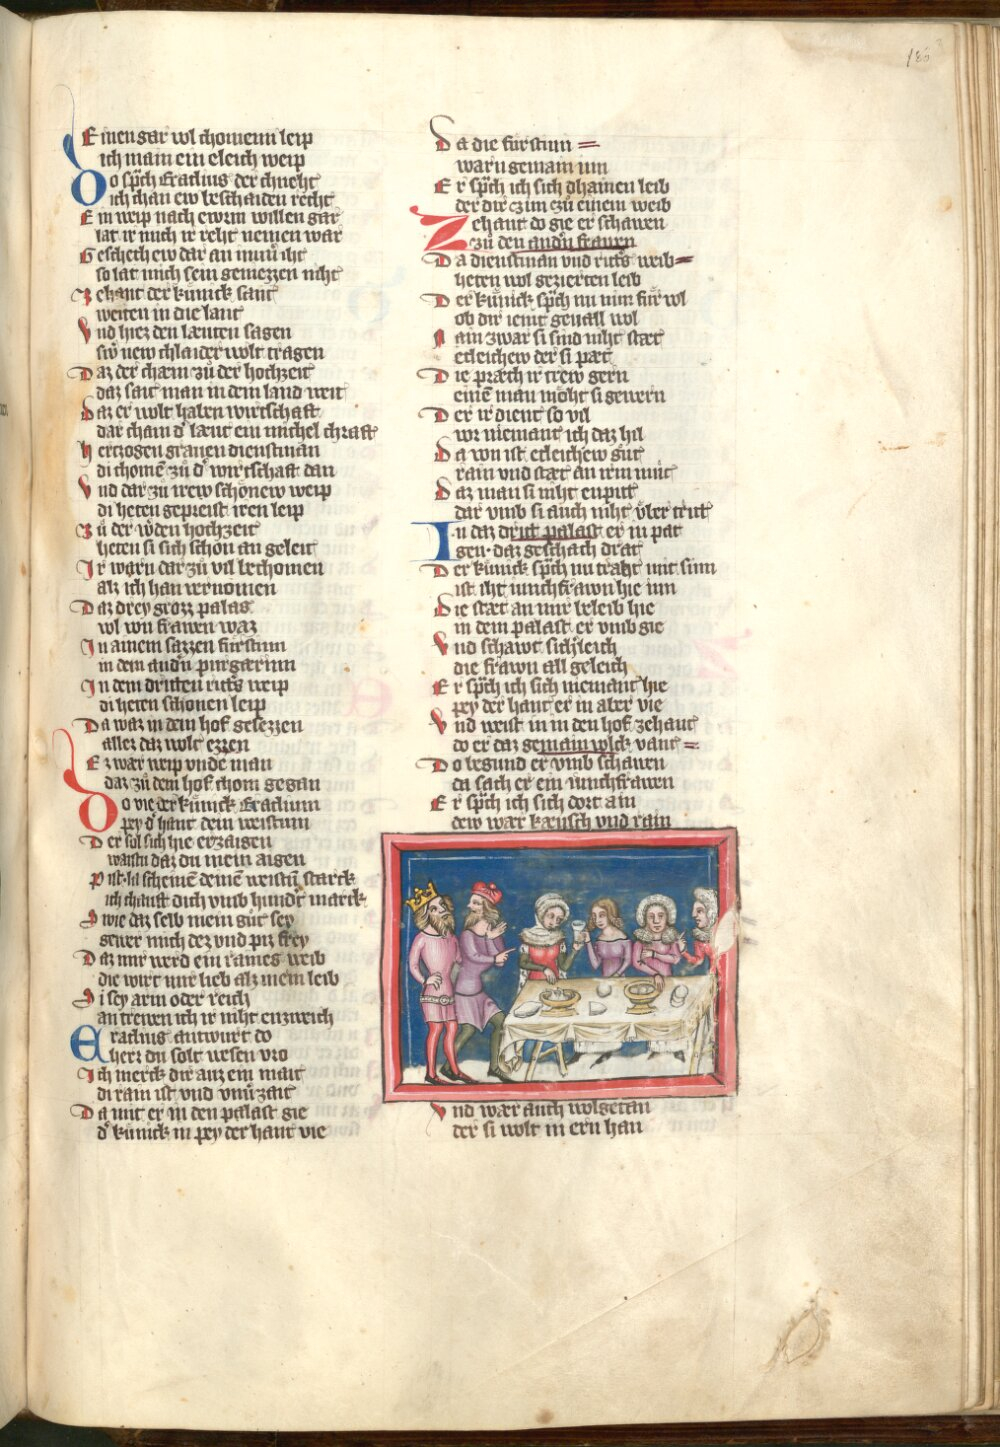 185
Einen gar wl chomenn leip
ich main ein eleich weip
Do sp̄ch Eradius der chneht
ich chan ew beschaiden recht
Ein weip nach ewrm willen gar
lat ir mich ir reht nemen war
Geschech ew dar an min̄ iht
so lat mich sein geniezzen niht
Zehant der kůnick sant
weiten in die lant
Vnd hiez den læuten sagen
swˢ new chlaider wolt tragen
Daz der chæm zů der hochzeit
daz sait man in dem land weit
Daz er wolt haben wirtschaft
dar cham dˢ læut ein michel chraft
Hertzogen grauen dienstman
di chomē zů dˢ wirtschaft dan
Vnd dar zů irew schonew weip
di heten gepreist iren leip
Zů der wˢden hochzeit
heten si sich schon an geleit
Ir warn dar zů vil bechomen
als ich han vernomen
Daz drey grozz palas
wl von frawen waz
In ainem sazzen fürstinn
in dem andˢn purgærinn
In dem dritten rittˢs weip
di heten schonen leip
Da waz in dem hof gesezzen
allez daz wolt ezzen
Ez wær weip vnde man
daz zů dem hof chom gegan
Do vie der kůnick Eradium
pey dˢ hant dein weistum
Der sol sich hie erzaigen
waistu daz du mein aigen
Pist lil scheinē deinē weistū starck
ich chauft dich vmb hundˢt marck
Swie daz selb mein gůt sey
gewer mich dez vnd piz frey
Daz mir werd ein raines weib
die wirt mir lieb als mein leib
Si sey arm oder reich
an trewen ich ir niht enzweich
Eradius antwurt do
herr du solt wesen vro
Ich merck dir auz ein mait
di rain ist vnd vnůˢzait
Da mit er in den palast gie
dˢ kůnick in pey der hant vie
Da die fürstinn
warn gemain inn
Er sp̄ch ich sich dhainen leib
der dir czim czů einem weib
Zehant do gie er schawen
zů den andˢn frawen
Da dienstman vnd rittˢs weib
heten wol gezierten leib
Der kůnick sp̄ch nu nim für wl
ob dir iemt geuall wol
Nain zwar si sind niht stæt
etleichew der si pæt
Die præch ir trew gern
einē man moht si gewern
Der ir dient so vil
vor niemant ich daz hil
Da von ist etleichew gůt
rain vnd stæt an irm můt
Daz man si niht enpitt
dar vmb si auch niht vber tritt
In daz dritt palast er in pat
gen· daz geschach drat
Der kůnick sp̄ch nu traht mit sinn
ist iht iunchfrawn hie inn
Die stæt an mir beleib hie
in dem palast er vmb gie
Vnd schawt sichˢleich
die frawn all geleich
Er sp̄ch ich sich niemant hie
pey der hant er in aber vie
Vnd weist in in den hof zehant
do er daz gemain volck vant
Do begund er vmb schawen
da sach er ein iunchfrawen
Er sp̄ch ich sich dort ain
dew wær kæusch vnd rain
Vnd wær auch wolgetan
der si wolt in ern han